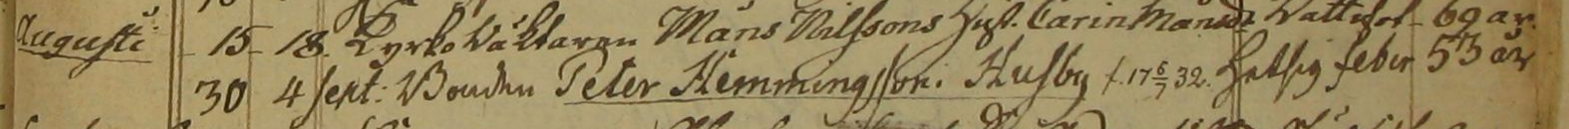 Augusti 15 18. Kyrko Väktaren Måns Nilssons Hust. Carin Månsd. Vattusot 69 år.
30 4 Sept: Bonden Peter Hemmingsson i Husby f. 17 6/7 32. Hetsig feber 53 år